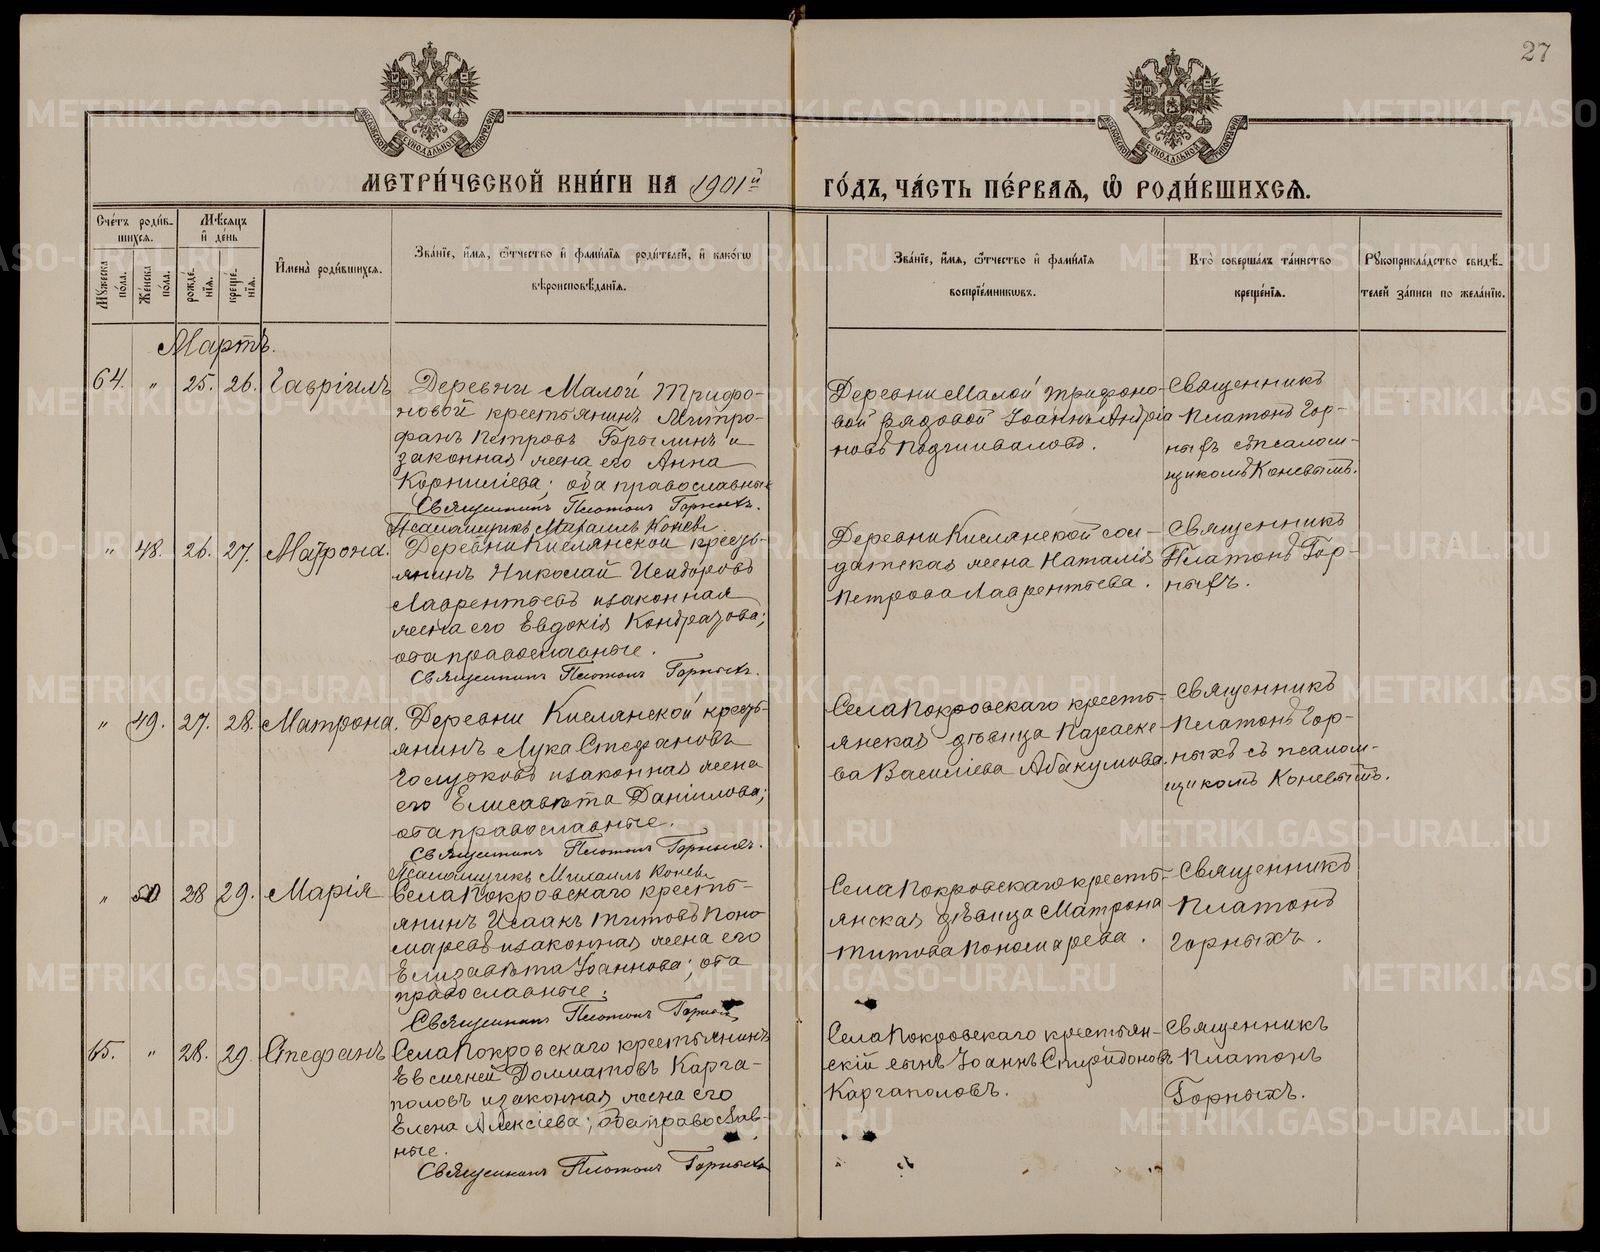 27
МЕТРИ́ЧЕСКОЙ КНИ́ГИ НА 1901й ГО́ДЪ, ЧА́СТЬ ПЕ́РВАЯ, Ѽ РОДИ́ВШИХСЯ.
Сче́тъ роди́в-
шихся.
Мѣсяцъ
и де́нь
Му́жеска по́ла.
Же́нска по́ла.
рожде́нія.
креще́нія.
И҆мена̀ роди́вшихся.
Зва́ніе, и҆́мя, ѻ҆́тчество и҆ фами́лія роди́телей, и҆ како́гѡ
вѣроисповѣ́данія.
Зва́ніе, и҆́мя, ѻ҆́тчество и҆ фами́лія
воспріе́мникѡвъ.
Кто̀ соверша́лъ та́инство
креще́нія.
Рукоприкла́дство свидѣ́-
телей за́писи по жела́нію.
Мартъ.
64. " 25. 26. Гавріилъ
Деревни Малой Трифо-
новой крестьянинъ Митро-
фанъ Петровъ Брылинъ и
законная жена его Анна
Корнилiева; оба православные
Священникъ Платонъ Горныхъ.
Псаломщикъ Михаилъ Коневъ
Деревни Малой Трифоно-
вой рядовой Іоаннъ Андріа
новъ Подшиваловъ.
Священникъ
Платонъ Гор-
ныхъ съ псалом-
щикомъ Коневымъ.
" 48. 26. 27. Матрона.
Деревни Кислянской кресть-
янинъ Николай Исидоровъ
Лаврентьевъ и законная
жена его Евдокія Кондратова;
оба православные.
Священникъ Платонъ Горныхъ.
Деревни Кислянской сол-
датская жена Наталія
Петрова Лаврентьева.
Священникъ
Платонъ Гор-
ныхъ.
" 49. 27. 28. Матрона.
Деревни Кислянской кресть-
янинъ Лука Стефановъ
и законная жена
его Елисавета Даніилова;
оба православные.
Священникъ Платонъ Горныхъ.
Псаломщикъ Михаилъ Коневъ
Села Покровскаго кресть-
янская дѣвица Параске-
ва Василіева Абакумова.
Священникъ
Платонъ Гор-
ныхъ съ псалом-
щикомъ Коневымъ.
" 50 28 29. Марія
Села Покровскаго кресть-
янинъ Исаакъ Титовъ Поно
маревъ и законная жена его
Елизавѣта Іоаннова; оба
православные.
Священникъ Платонъ Горныхъ
Села Покровскаго кресть-
янская дѣвица Матрона
Титова Пономарева.
Священникъ
Платонъ
Горныхъ.
65. " 28. 29. Стефанъ
Села Покровскаго крестьянинъ
Евсигней Домнатовъ Карга-
половъ и законная жена его
Елена Алексіева; оба православ-
ные.
Священникъ Платонъ Горныхъ
Села Покровскаго крестьян-
скій сынъ Іоаннъ Спиридоновъ
Каргаполовъ.
Священникъ
Платонъ
Горныхъ.
METRIKI.GASO-URAL.RU